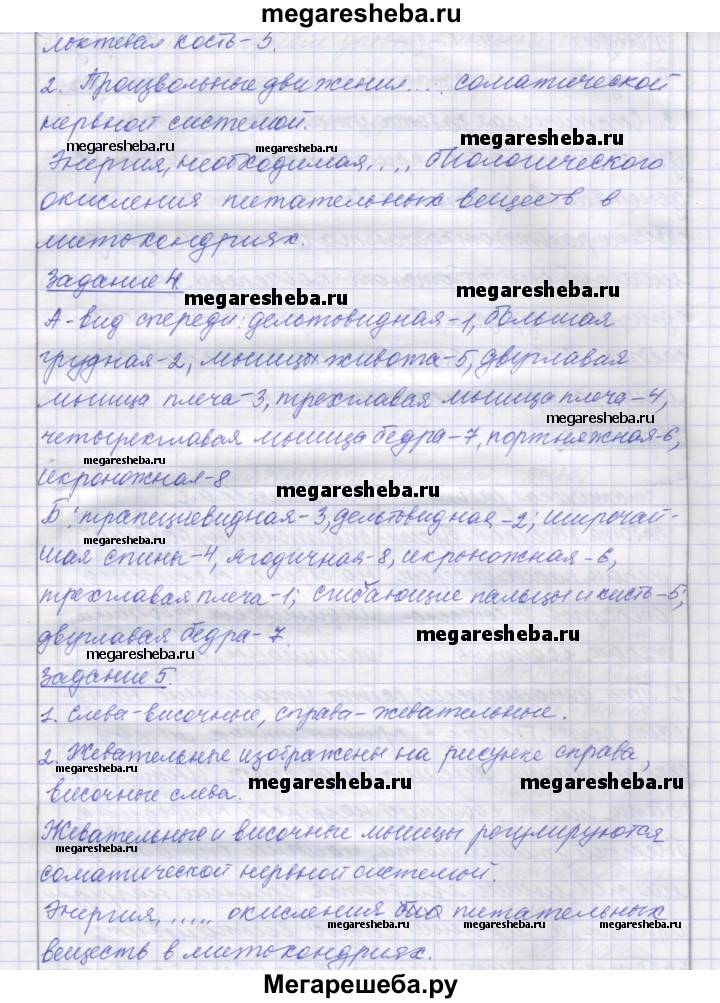 megaresheba.ru
локтевая кость - 5.
2. Произвольные движения... соматической
нервной системой.
megaresheba.ru
megaresheba.ru
Энергия, необходимая.... биологического
megaresheba.ru
окисления питательных веществ в
митохондриях.
megaresheba.ru
Задание 4.
megaresheba.ru
megaresheba.ru
А - вид спереди: дельтовидная - 1, большая
грудная - 2, мышцы живота - 5, двуглавая
мышца плеча - 3, трехглавая мышца плеча - 4,
megaresheba.ru
четырехглавая мышца бедра - 7, портняжная - 6,
megaresheba.ru
икроножная - 8
megaresheba.ru
Б: трапециевидная - 3, дельтовидная - 2; широчай-
шая спины - 4, ягодичная - 8, икроножная - 6,
megaresheba.ru
трехглавая плеча - 1; сгибающие пальцы и кисть - 5;
двуглавая бедра - 7.
megaresheba.ru
megaresheba.ru
Задание 5.
1. Слева - височные, справа - жевательные.
2. Жевательные изображены на рисунке справа,
megaresheba.ru
megaresheba.ru
megaresheba.ru
височные слева.
Жевательные и височные мышцы регулируются
megaresheba.ru
соматической нервной системой.
Энергия, ..... окисления био питательных
megaresheba.ru
megaresheba.ru
веществ в митохондриях.
Мегарешеба.ру